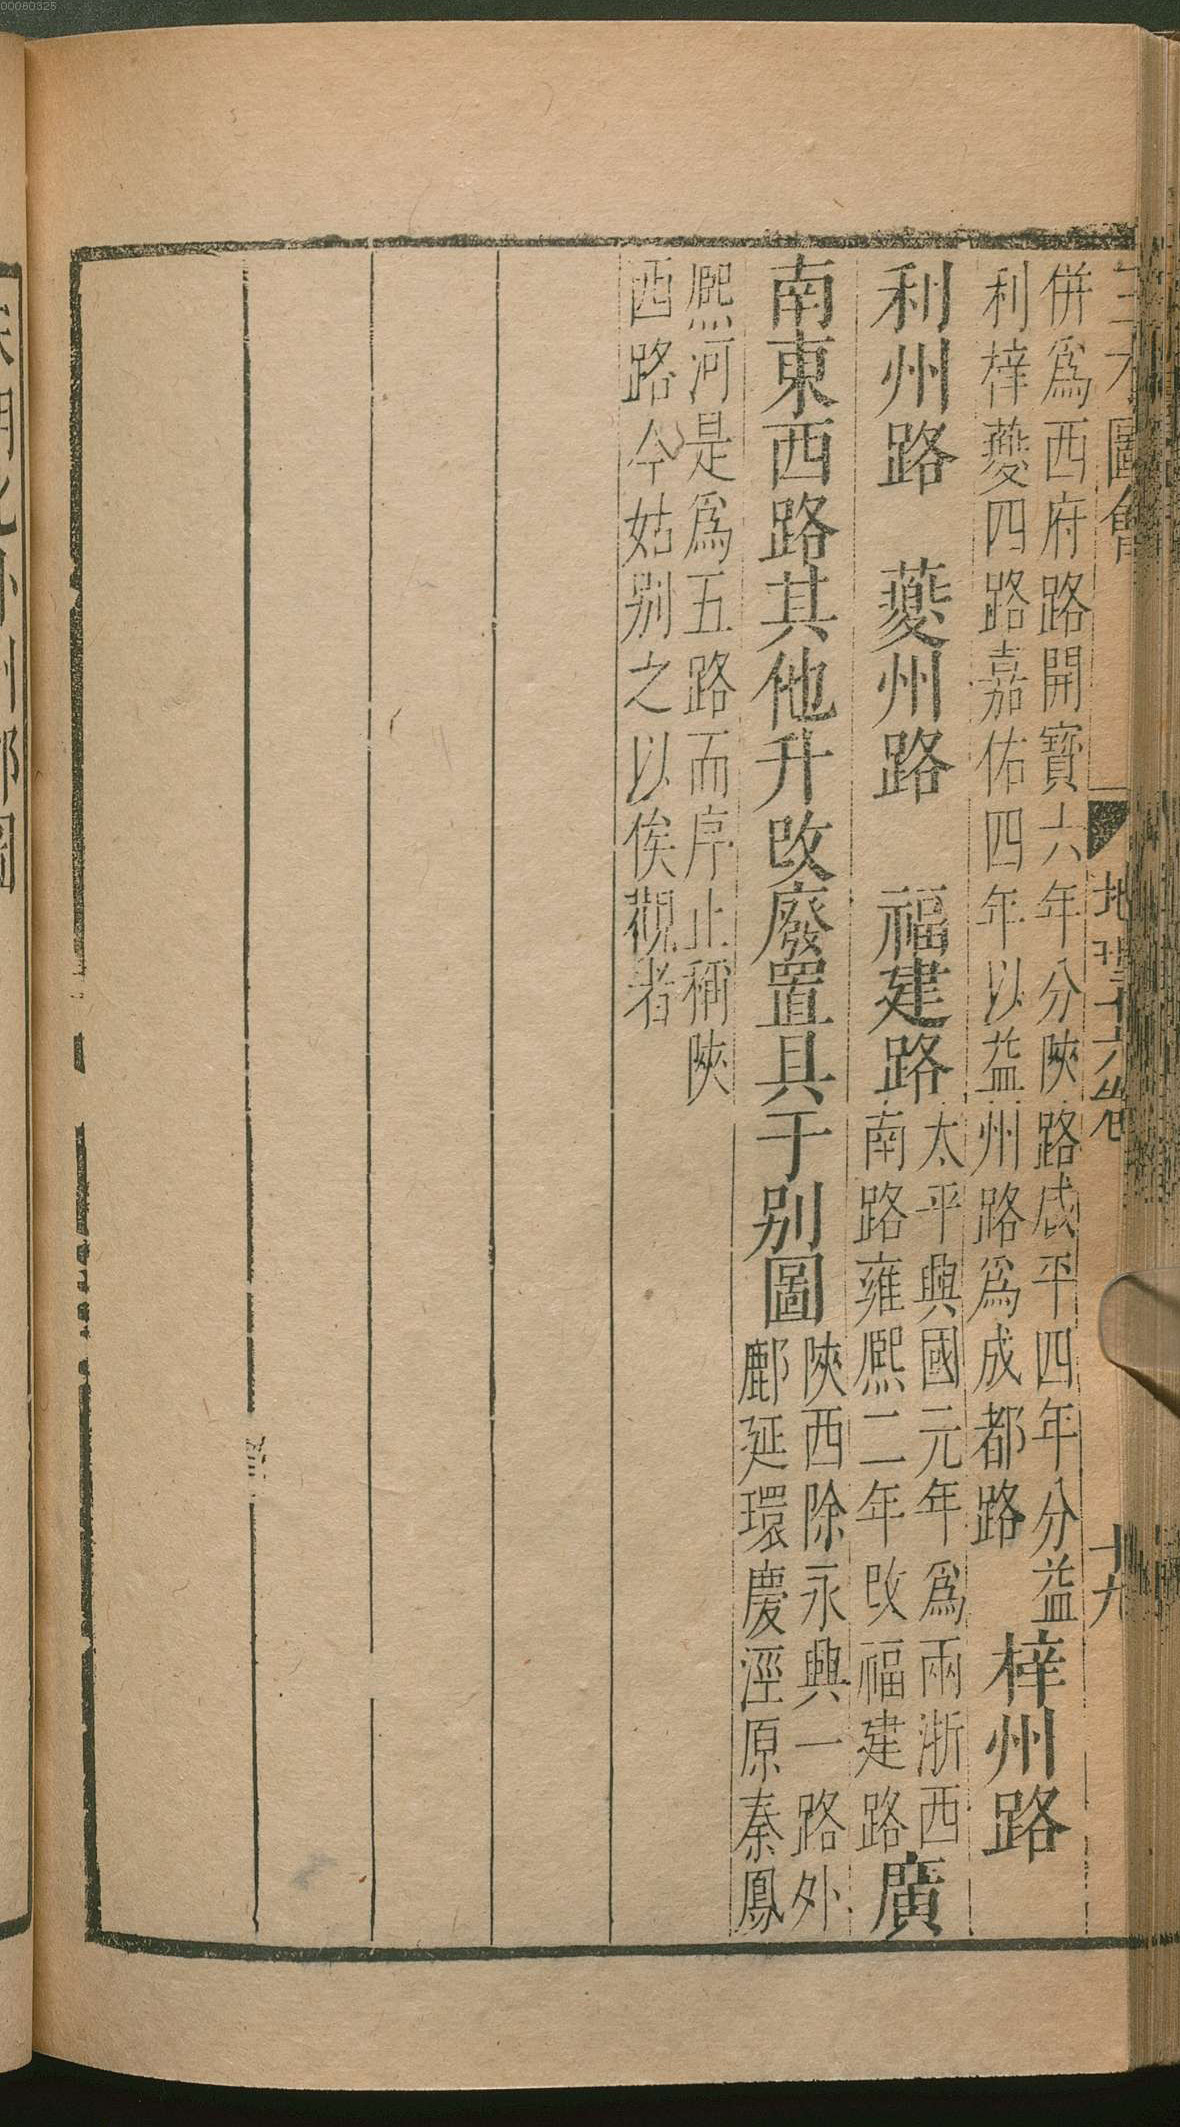 三才圖會 地理十六卷 十九
併爲西府路開寶六年分陝路咸平四年分益
利梓夔四路嘉佑四年以益州路爲成都路
梓州路
利州路 夔州路 福建路
太平興國元年爲兩浙西
南路雍熈二年改福建路
廣
南東西路其他升改廢置具于别圖
陝西除永興一路外
鄜延環慶涇原秦鳳
熈河是爲五路而序止稱陝
西路今姑别之以俟觀者
00060325